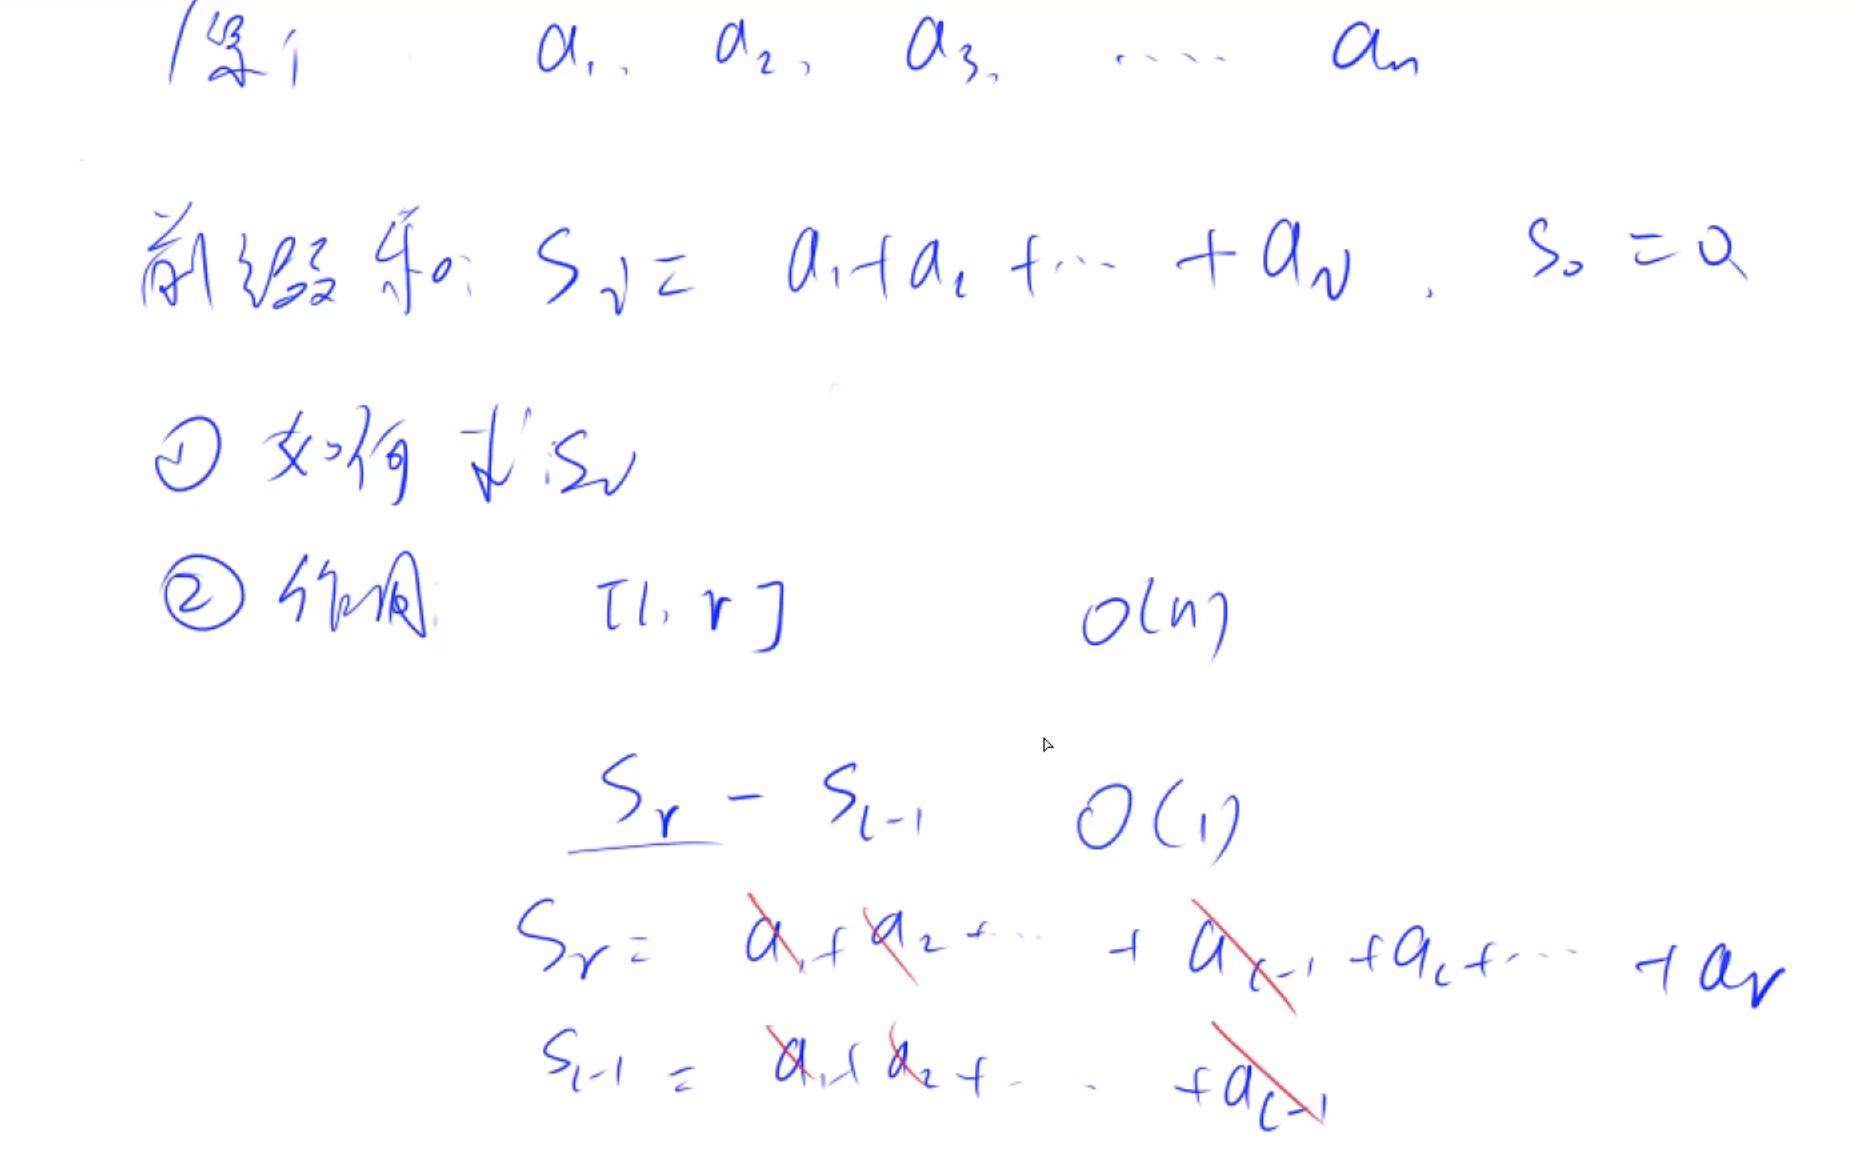 原 a₁, a₂, a₃, ..... aₙ
前缀和: Sᵢ = a₁+a₂ +... + aᵢ. S₀ = 0
① 如何求 Sᵢ
② 作用 [l, r] O(n)
Sᵣ - Sₗ₋₁ O(1)
Sᵣ = a₁+a₂+... + aₗ₋₁ +aₗ+... +aᵣ
Sₗ₋₁ = a₁+a₂+... +aₗ₋₁